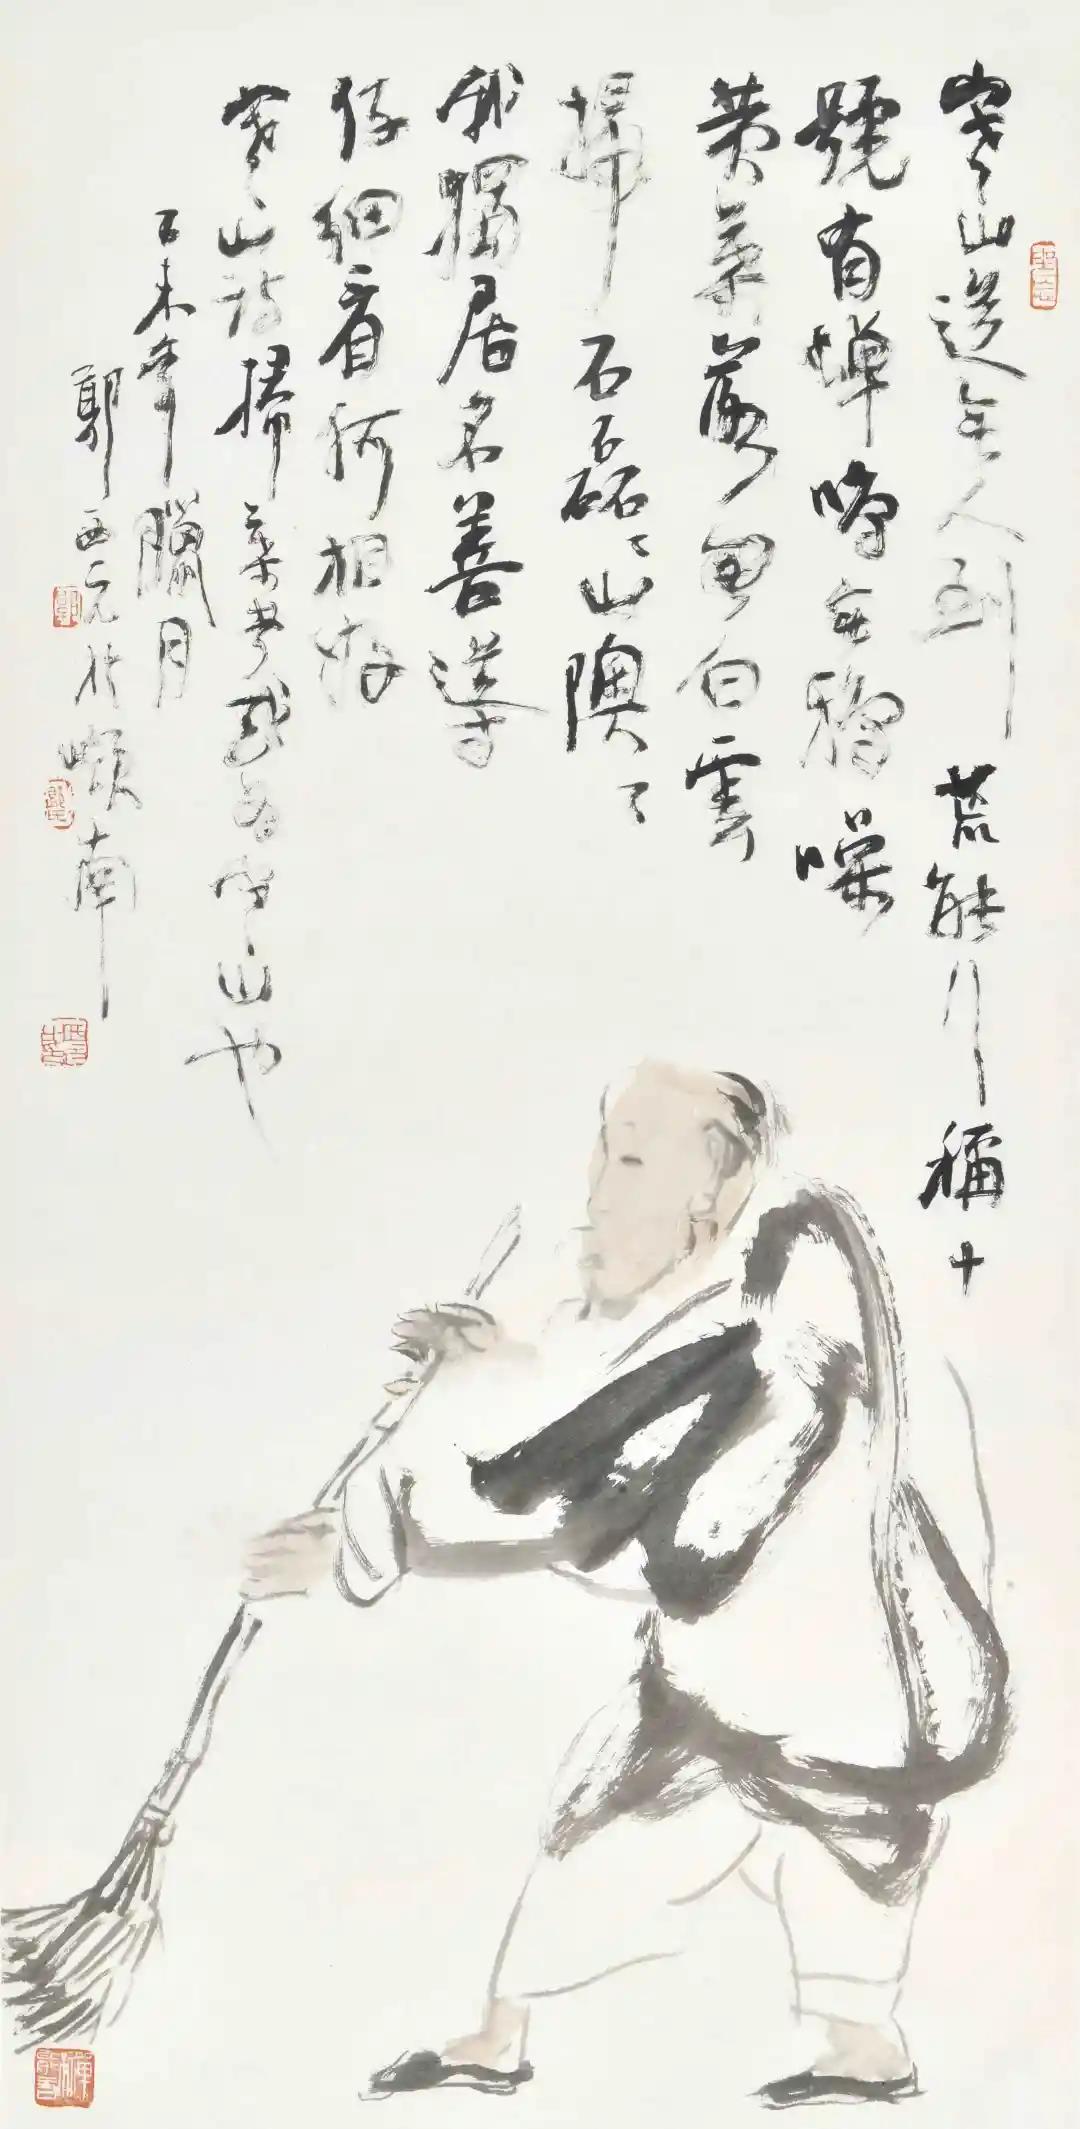 寒山道無人到若能行稱十
號有蟬鳴無鴉噪
黃葉落白雲
掃石磊々山隩々
我獨居名善導
仔細看何相好
寒山詩掃葉者或為寒山也
未年臘月
郭西元於嶺南